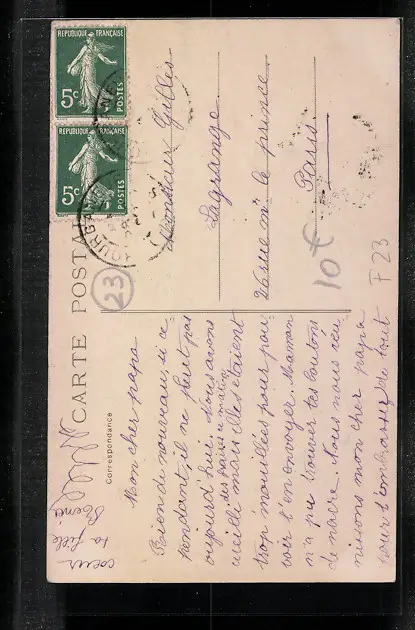 REPUBLIQUE FRANÇAISE
5c POSTES
REPUBLIQUE FRANÇAISE
5c POSTES
CARTE POSTA
Correspondance
23
Mon cher papa
Rien de nouveau, si ce
pendant, il ne pleut pas
aujourd'hui. Nous avons
des fraises ce matin
cueilli mais elles étaient
trop mouillées pour pou
voir t'en envoyer. Maman
n'a pu trouver tes boutons
de nacre. Nous nous réu
nissons mon cher papa
pour t'embrasser de tout
coeur
ta fille
Monsieur Gilles
Lagrange
26 rue Mr le prince
Paris
10 €
F 23